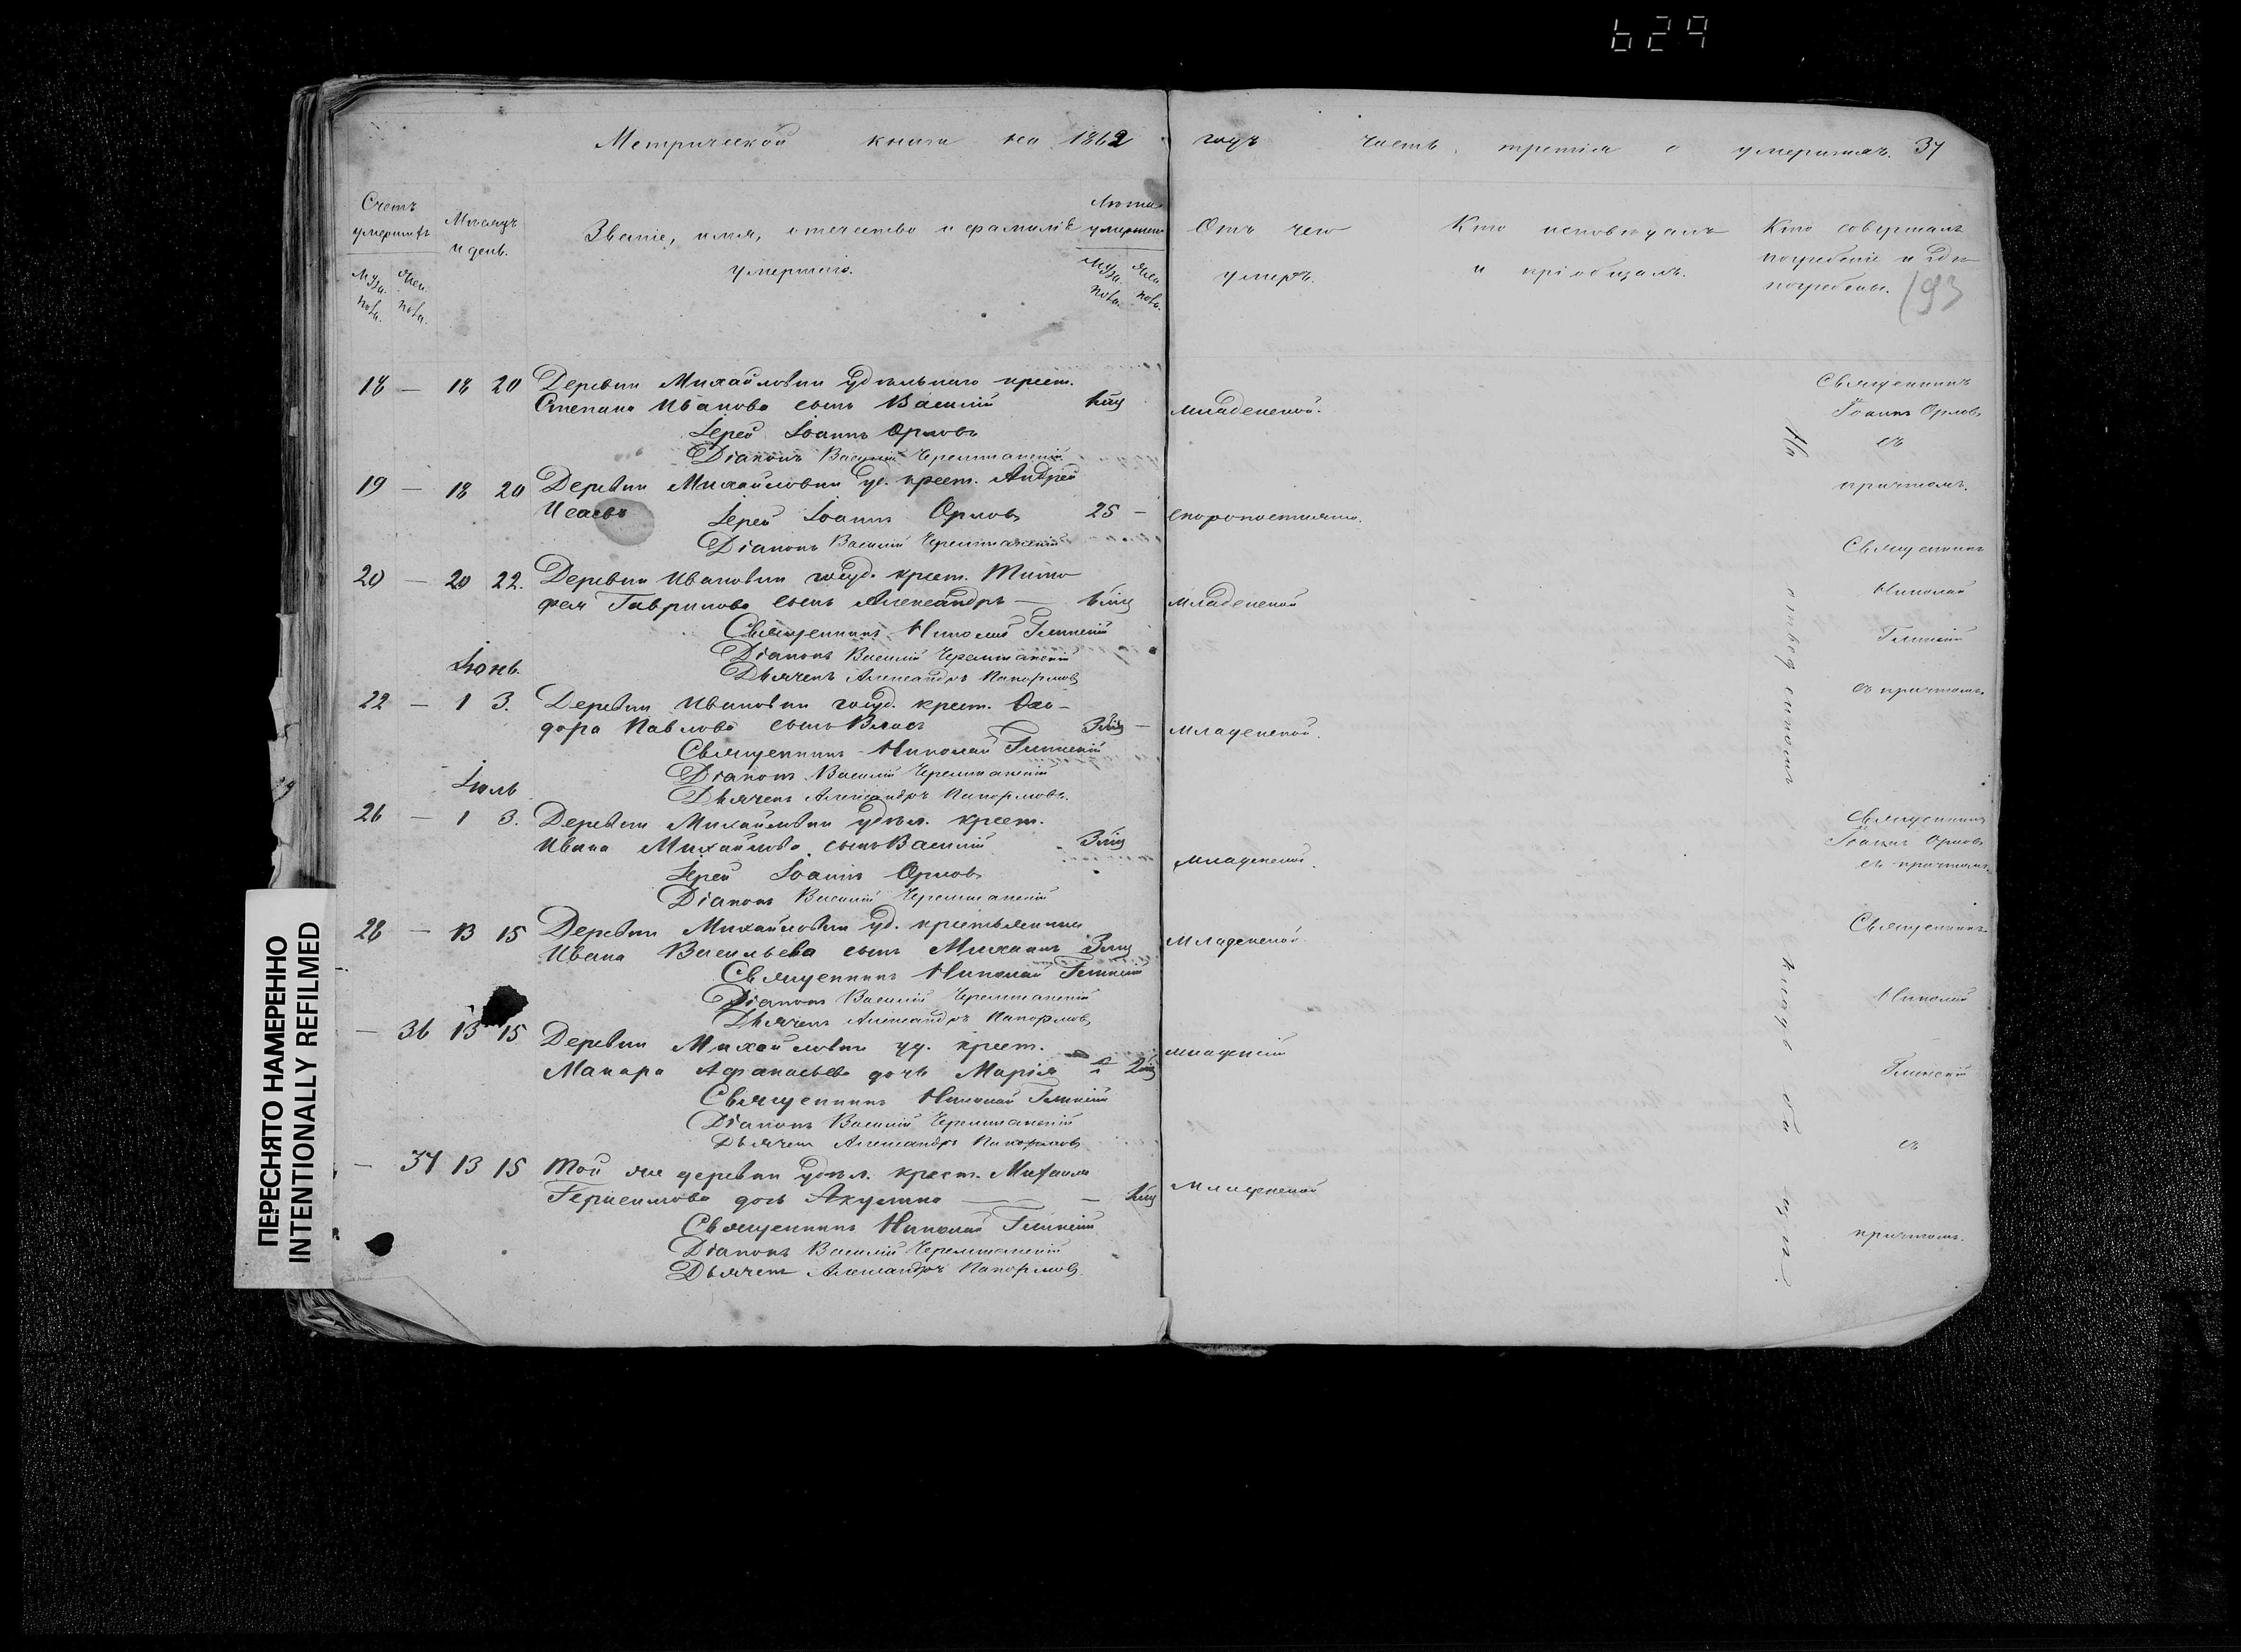 629
Метрической книги на 1862 годъ часть третія о умершихъ. 37
Счетъ умершихъ
Мѣсяцъ и день.
Званіе, имя, отечество и фамилія умершаго.
Лѣта умершаго
Отъ чего умеръ.
Кто исповѣдалъ и пріобщалъ.
Кто совершалъ погребеніе и гдѣ погребены.
Муж. пола.
Жен. пола.
Муж. пола.
Жен. пола.
193
18 — 18 20 Деревни Михайловки удѣльнаго крест.
Степана Иванова сынъ Василій
младенской.
Іерей Іоаннъ Орловъ
Діаконъ Василій Черемшанскій
Священникъ
Іоаннъ Орловъ
съ
причтомъ.
19 — 18 20 Деревни Михайловки уд. крест. Андрей
Исаевъ 25 — скоропостижно.
Іерей Іоаннъ Орловъ
Діаконъ Василій Черемшанскій
20 — 20 22. Деревни Ивановки госуд. крест. Тимо
фея Гаврилова сынъ Александръ —
младенской
Священникъ Николай Глинскій
Діаконъ Василій Черемшанскій
Дьячекъ Александръ
Священникъ
Николай
Глинскій
съ причтомъ.
Іюнь.
22 — 1 3. Деревни Ивановки госуд. крест. Ѳео-
дора Павлова сынъ Власъ
младенской.
Священникъ Николай Глинскій
Діаконъ Василій Черемшанскій
Дьячекъ Александръ
Іюль
26 — 1 3. Деревни Михайловки удѣл. крест.
Ивана Михайлова сынъ Василій
младенской.
Іерей Іоаннъ Орловъ
Діаконъ Василій Черемшанскій
Священникъ
Іоаннъ Орловъ
съ причтомъ.
28 — 13 15 Деревни Михайловки уд. крестьянина
Ивана Васильева сынъ Михаилъ
младенской.
Священникъ Николай Глинскій
Діаконъ Василій Черемшанскій
Дьячекъ Александръ
Священникъ
Николай
Глинскій
съ
причтомъ.
— 36 13 15 Деревни Михайловки уд. крест.
Макара Афанасьева дочь Марія
младенской
Священникъ Николай Глинскій
Діаконъ Василій Черемшанскій
Дьячекъ Александръ
— 37 13 15 Той же деревни удѣл. крест. Михаила
Герасимова дочь Акулина —
младенской
Священникъ Николай Глинскій
Діаконъ Василій Черемшанскій
Дьячекъ Александръ
На
кладбищѣ
ПЕРЕСНЯТО НАМЕРЕННО
INTENTIONALLY REFILMED